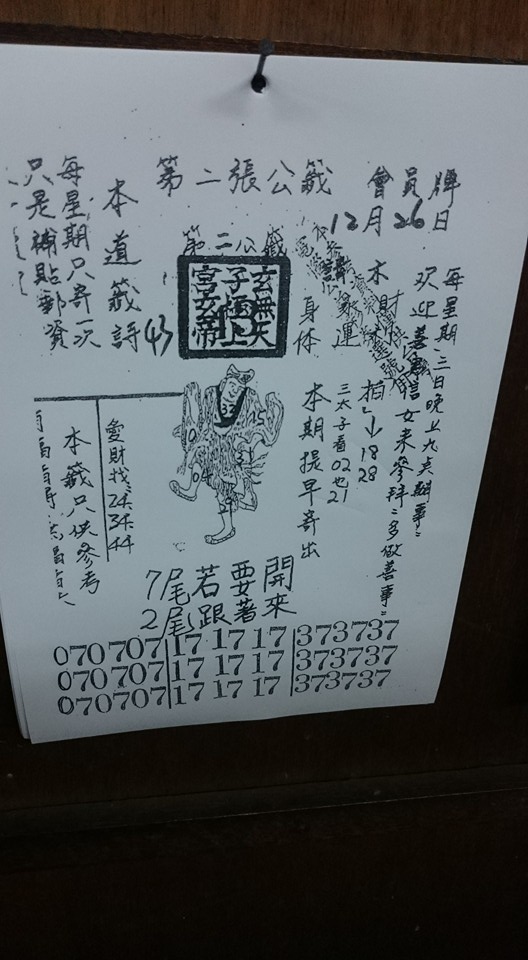 會員牌
12月26日
第二張公籤
第二公籤
玄無天
子極上
宮玄帝
每星期三日晚上九点辦事
欢迎善男信女来參拜多做善事
木財
象運
身体
柏↓1828
三太子看02也21
本期提早寄出
本道籤詩
43
每星期只寄一次
只是補貼郵資
32
15
愛財找24.34.44
本籤只供參考
7尾若要開
2尾跟著來
070707 17 17 17 373737
070707 17 17 17 373737
070707 17 17 17 373737